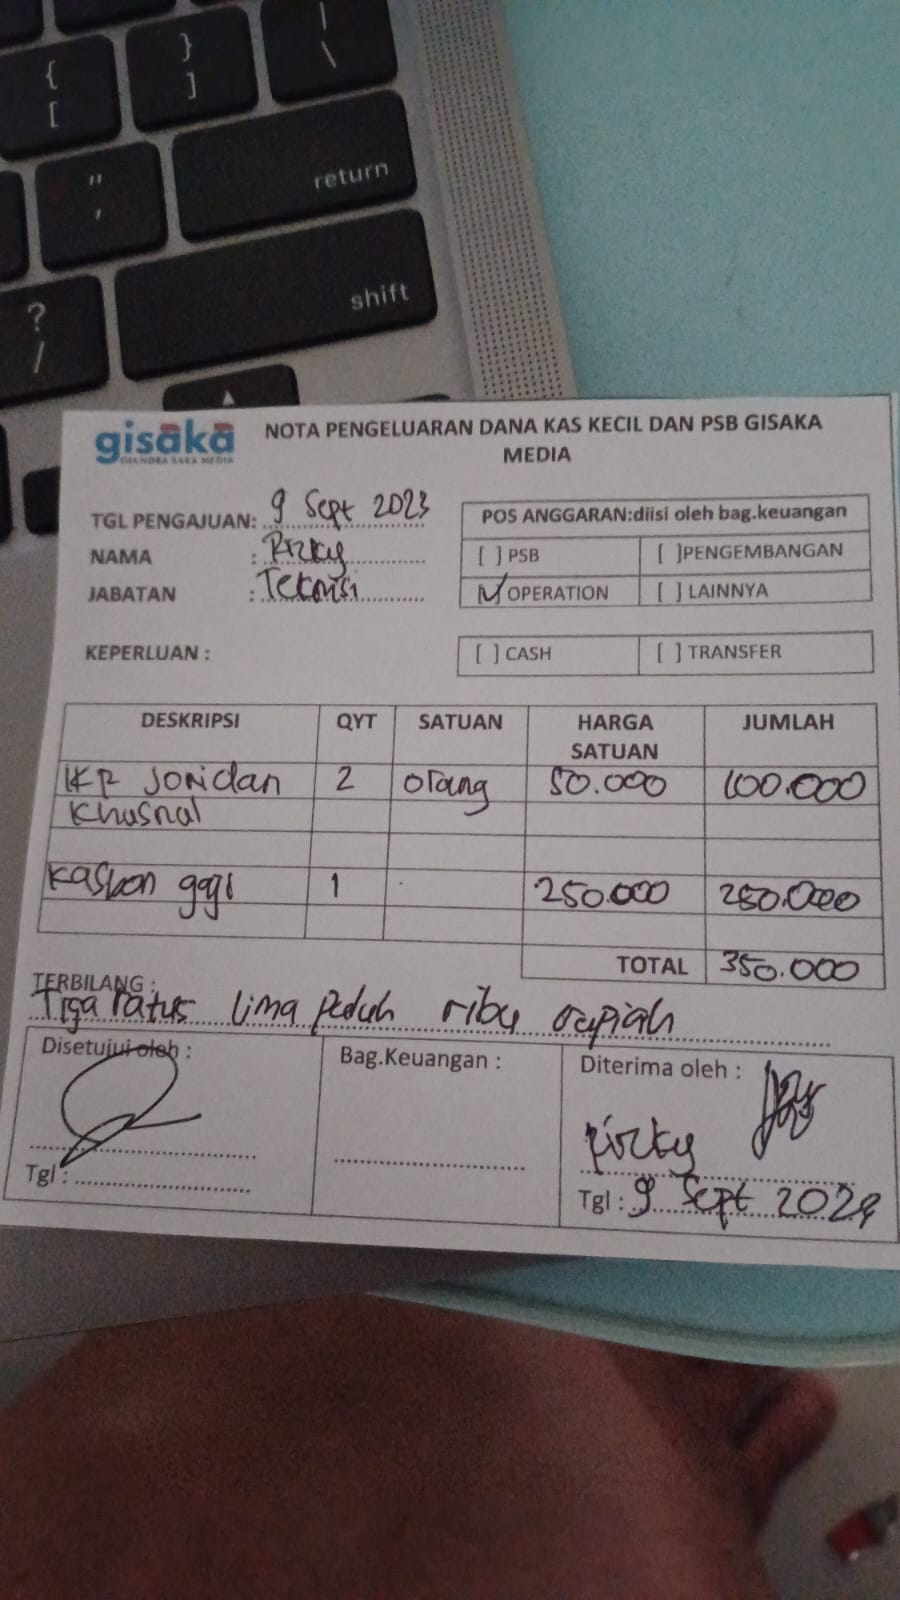 {
[
}
]
|
\
"
'
return
?
/
shift
gisaka
CHANDRA SAKA MEDIA
NOTA PENGELUARAN DANA KAS KECIL DAN PSB GISAKA
MEDIA
TGL PENGAJUAN: 9 Sept 2023
NAMA : Rizky
JABATAN : Teknisi
POS ANGGARAN:diisi oleh bag.keuangan
[ ] PSB [ ]PENGEMBANGAN
[✓] OPERATION [ ] LAINNYA
KEPERLUAN :
[ ] CASH [ ] TRANSFER
DESKRIPSI QYT SATUAN HARGA SATUAN JUMLAH
Jordan 2 orang 50.000 100.000
Khusnal
Kasbon gogi 1 250.000 250.000
TOTAL 350.000
TERBILANG :
Tiga ratus lima puluh ribu rupiah
Disetujui oleh : Bag.Keuangan : Diterima oleh :
Rizky
Tgl : Tgl : 9 Sept 2024